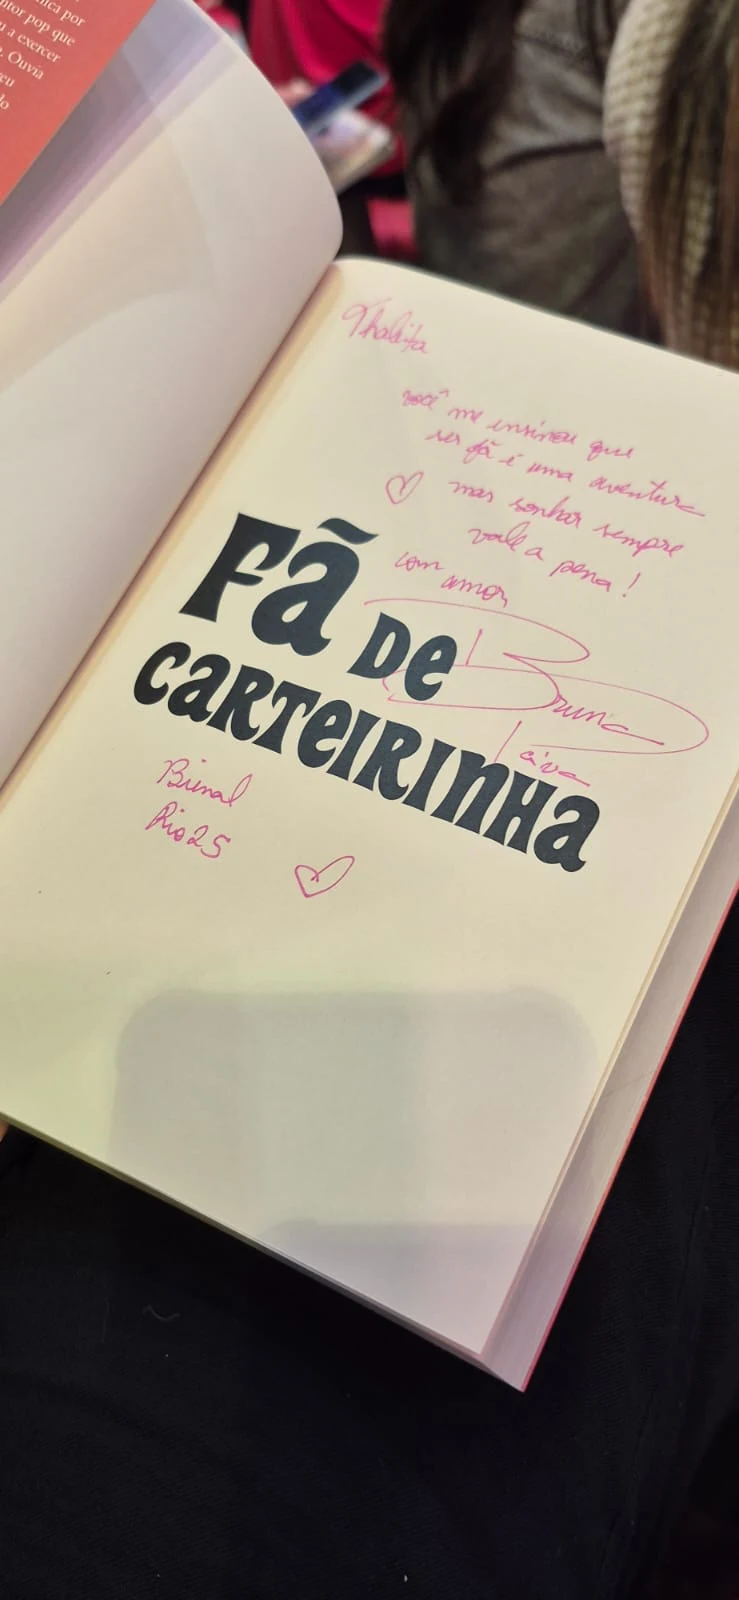 nica por
ntor pop que
u a exercer
. Ouvia
eu
do
Thalita
você me ensinou que
ser fã é uma aventura
mas sonhar sempre
vale a pena!
com
amor
Bruna
Paiva
Fã DE
CARTEIRINHA
Bienal
Rio 25